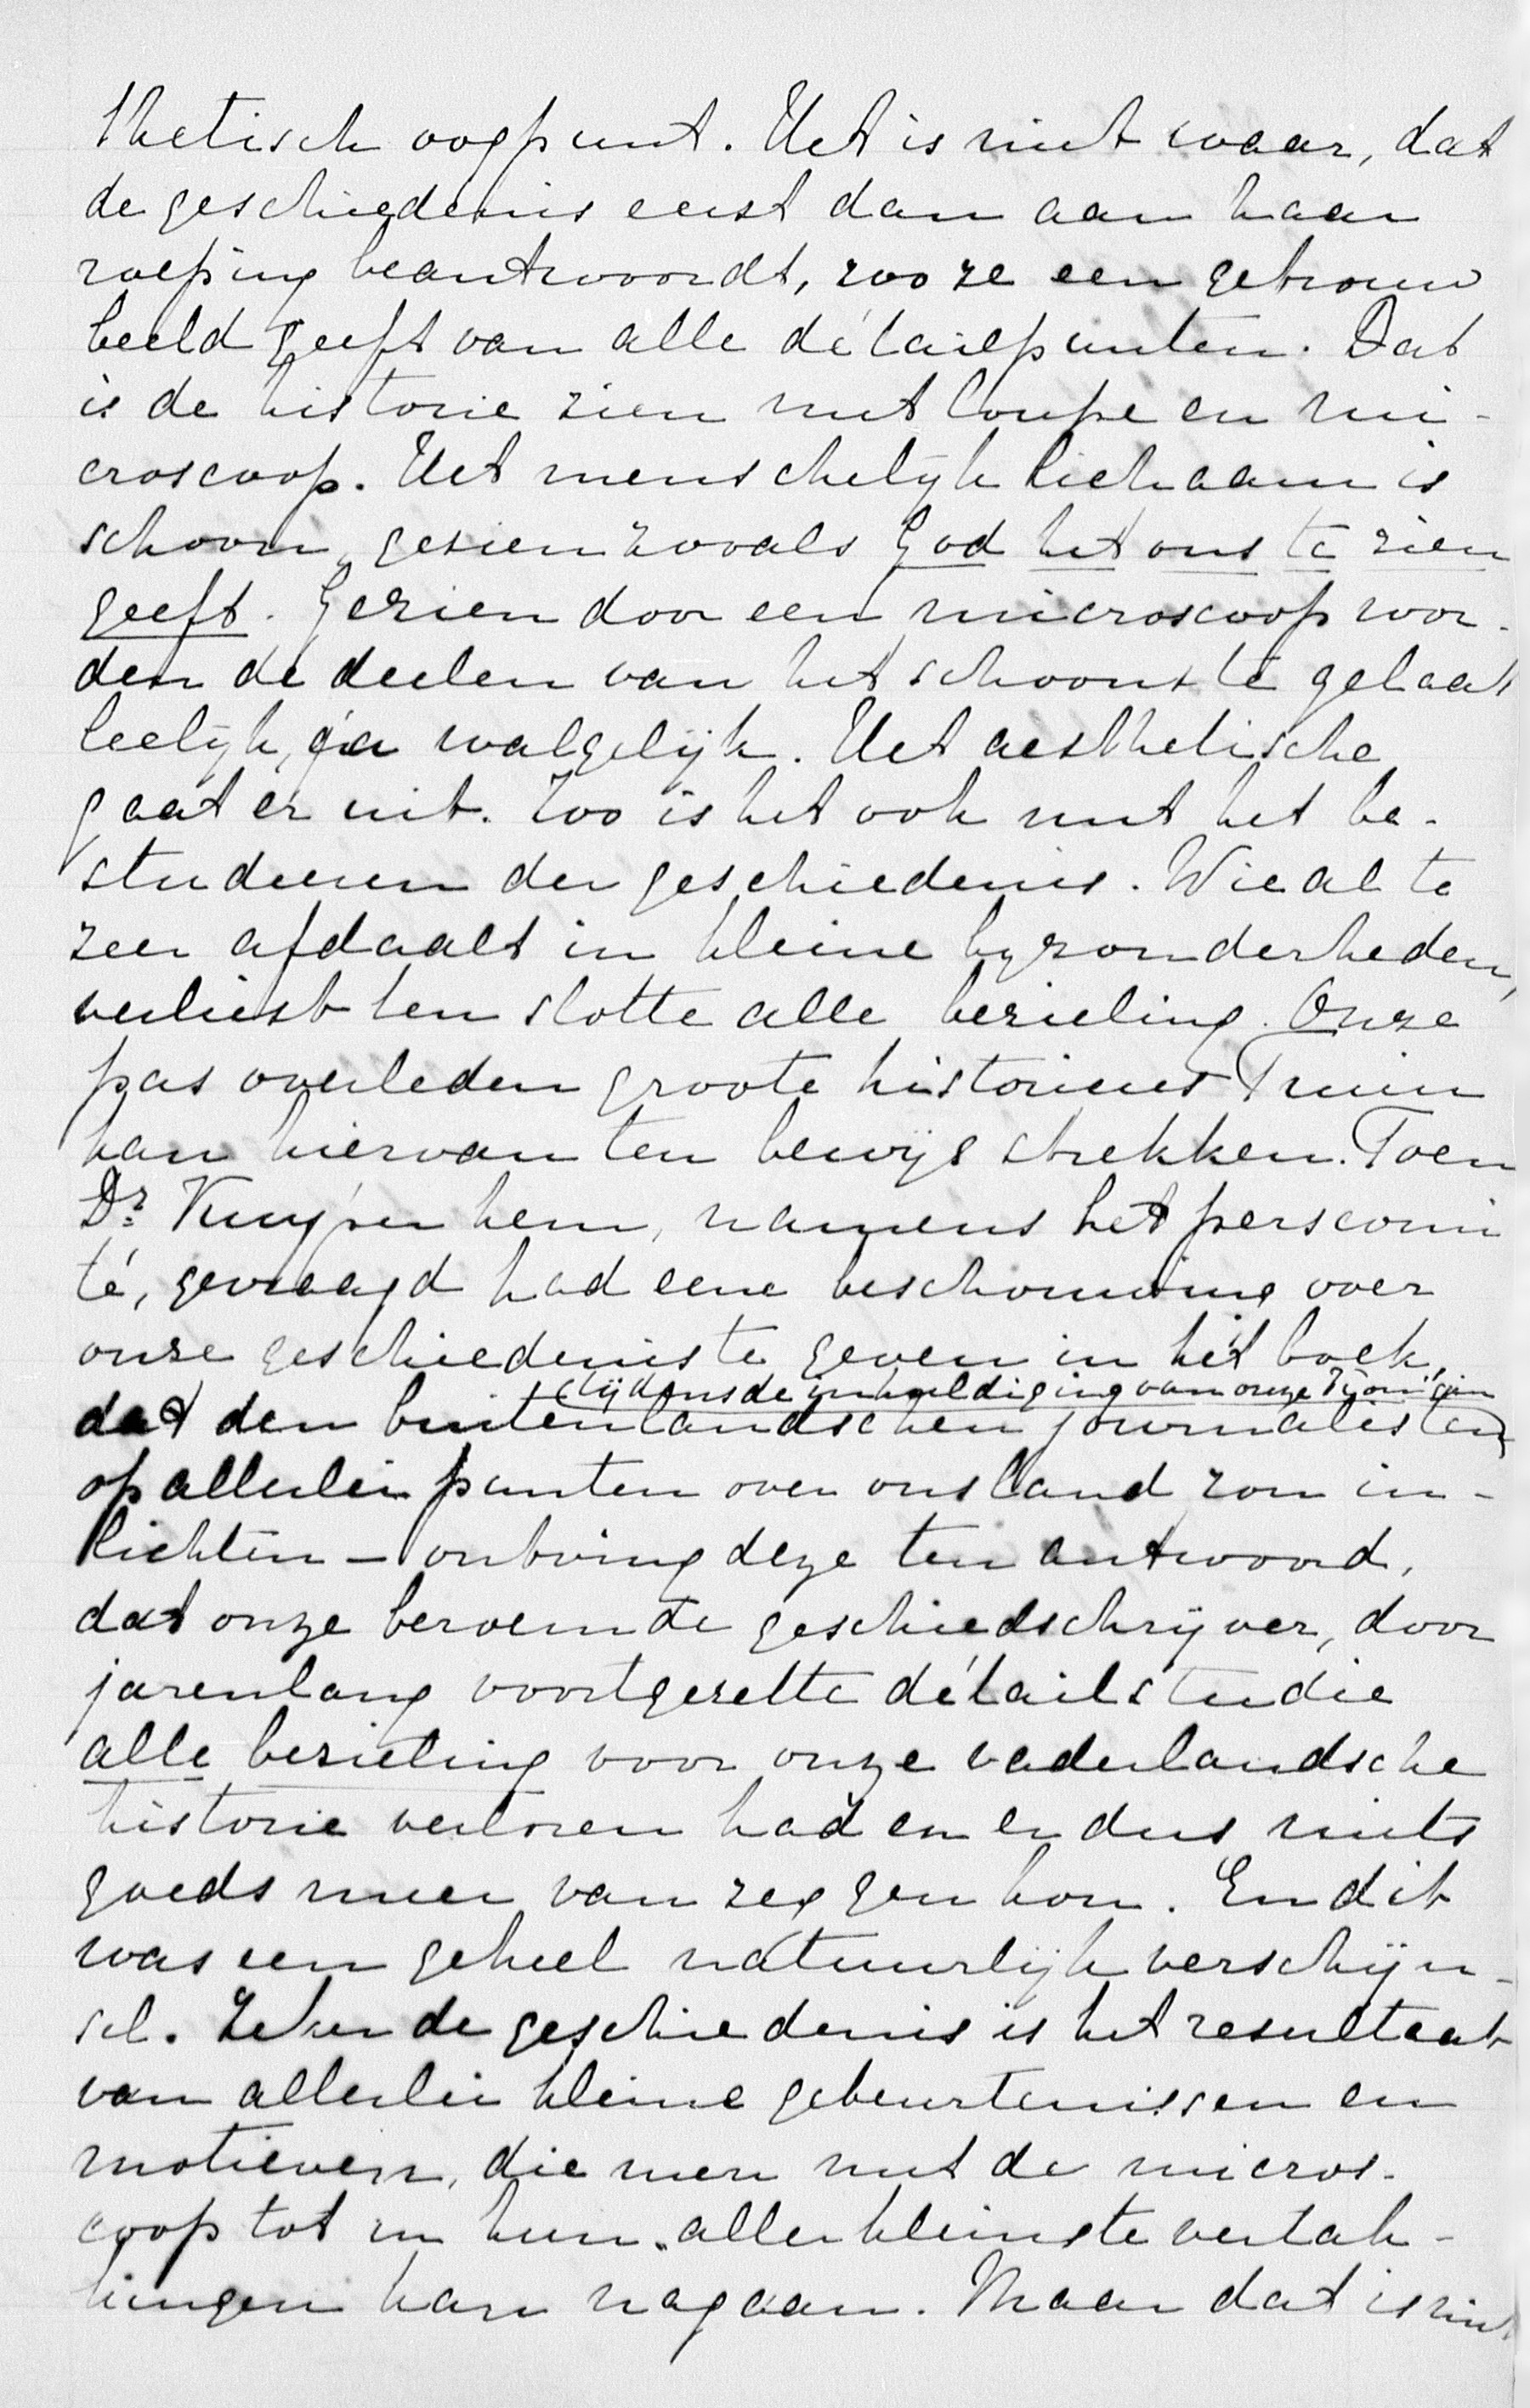 thetisch oogpunt. Het is niet waar, dat
de geschiedenis eerst dan aan haar
roeping beantwoordt, zoo ze een getrouw
beeld geeft van alle détailpunten. Dat
is de historie zien met loupe en mi-
croscoop. Het menschelijk lichaam is
schoon, gezien zooals God het ons te zien
geeft. Gezien door een microscoop wor-
den de deelen van het schoonste gelaat
leelijk, ja walgelijk. Het aesthetische
gaat er uit. Zoo is het ook met het be-
studeeren der geschiedenis. Wie al te
zeer afdaalt in kleine bijzonderheden,
verliest ten slotte alle bezieling. Onze
pas overleden groote historicus Fruin
kan hiervan ten bewijs strekken. Toen
Dr. Kuyper hem, namens het perscomi
té, gevraagd had eene beschouwing over
onze geschiedenis te geven in het boek,
tijdens de inhuldiging van onze Koningin
dat den buitenlandschen journalisten
op allerlei punten over ons land zou in-
lichten – ontving deze ten antwoord,
dat onze beroemde geschiedschrijver, door
jarenlang voortgezette détailstudie
alle bezieling voor onze vaderlandsche
historie verloren had en er dus niets
goeds meer van zeggen kon. En dit
was een geheel natuurlijk verschijn-
sel. Zeker de geschiedenis is het resultaat
van allerlei kleine gebeurtenissen en
motieven, die men met de micros-
coop tot in hun allerkleinste vertak-
kingen kan nagaan. Maar dat is niet